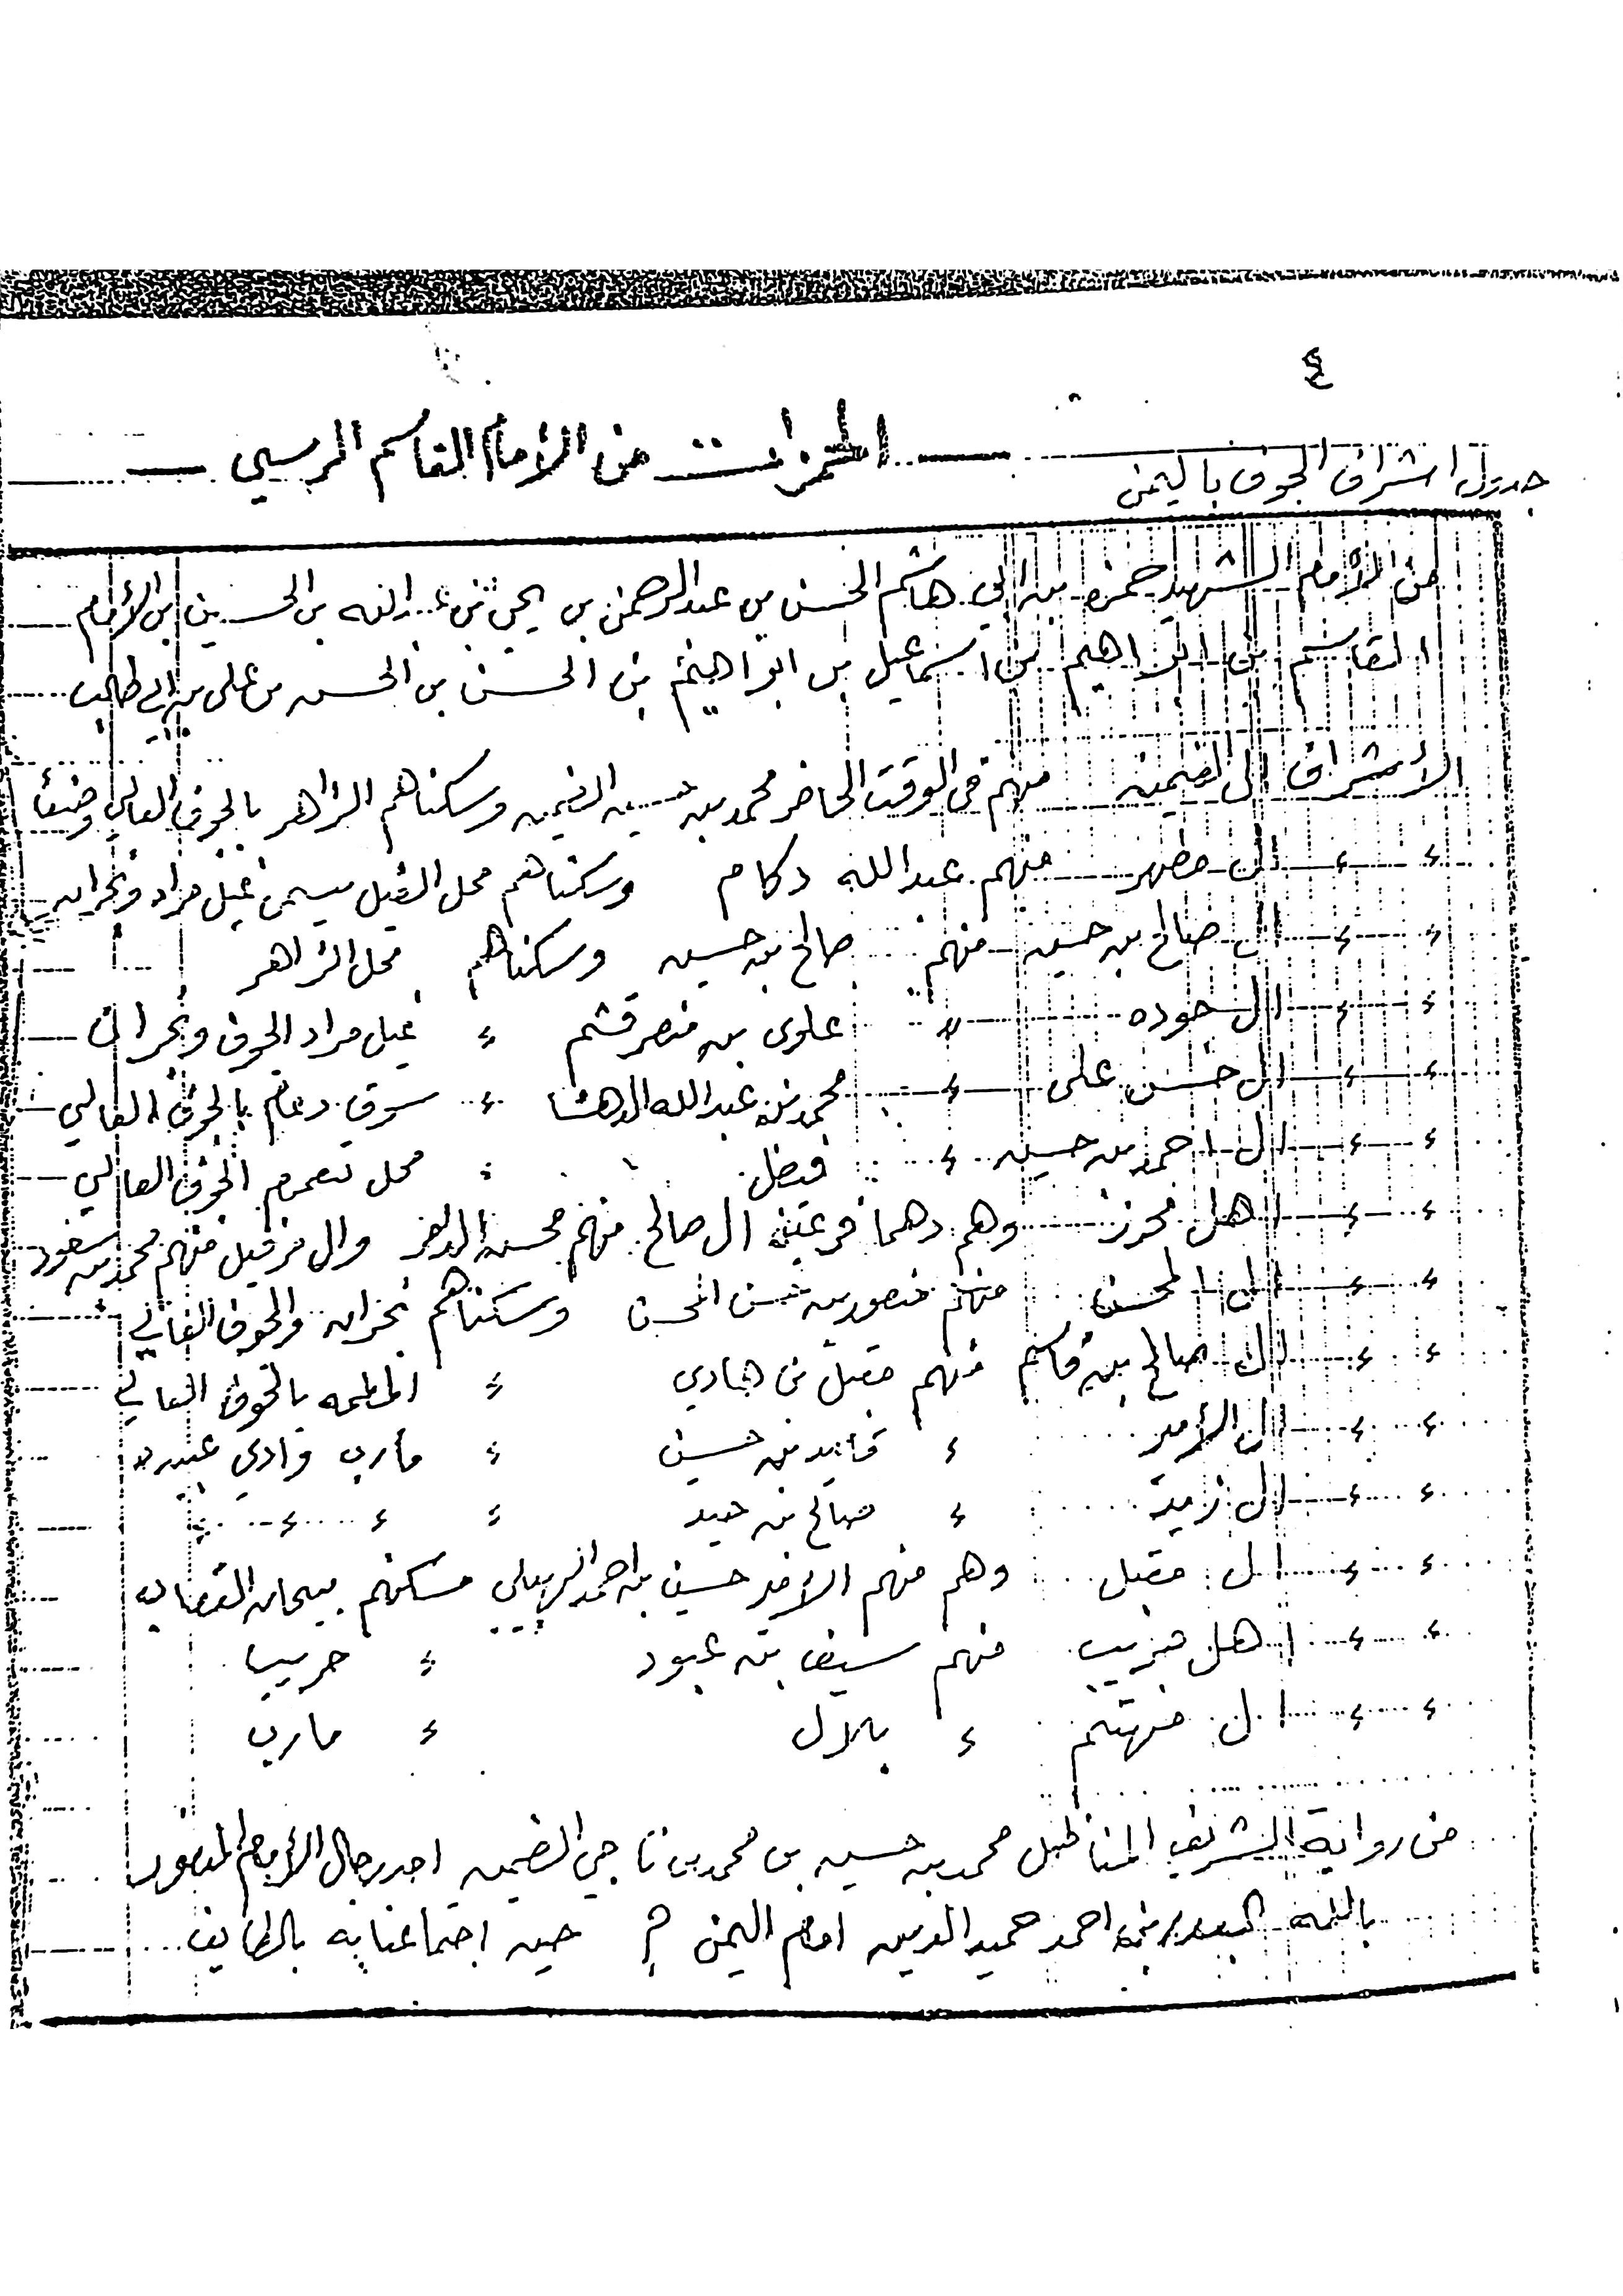 ٤
جدول اشراف الجوف باليمن — الحمزات من الأمام القاسم الرسي —
من الأمام الشهيد حمزه بن ابي هاشم الحسن بن عبد الرحمن بن يحيى بن عبدالله بن الحسين بن الأمام
القاسم بن ابراهيم بن اسماعيل بن ابراهيم بن الحسن بن الحسن بن علي بن ابي طالب
الأشراف ال الضمين منهم في الوقت الحاضر محمد بن حسين الضمين وسكناهم الزاهر بالجوف العالي
ء ء ال مطهر منهم عبد الله دكام وسكناهم محل الغيل يسمى غيل مراد ونجران
ء ء ال صالح بن حسين منهم صالح بن حسين وسكناهم محل الزاهر
ء ء ال حوده ء علوي بن منصر قشم ء غيل مراد الجوف ونجران
ء ء ال حسن علي ء محمد بن عبد الله الدهشا ء سوق دعام بالجوف العالي
ء ء ال احمد بن حسين ء فيصل ء محل الجوف العالي
ء ء اهل محرز وهم دهما فرعين ال صالح منهم محسن وال منهم محمد بن سعود
ء ء ال المحسن منهم منصور بن حسن المحسن وسكناهم نجران والجوف العالي
ء ء ال صالح بن قاسم منهم مقبل بن هادي ء المطمه بالجوف العالي
ء ء ال الأمير ء قايد بن حسين ء مارب وادي عبيده
ء ء ال زميد ء صالح بن حميد ء ء ء
ء ء ال مقبل وهم منهم الامير حسين بن احمد الهبيلي مسكنهم بيحان القصاب
ء ء اهل منهم سيف بن عبود ء حريب
ء ء ال ء بلال ء مارب
من رواية الشريف المناضل محمد بن حسين بن محمد بن ناجي الضمين احد رجال الأمام المنصور
بالله البدر بن احمد حميد الدين امام اليمن حين اجتماعنا به بالطايف